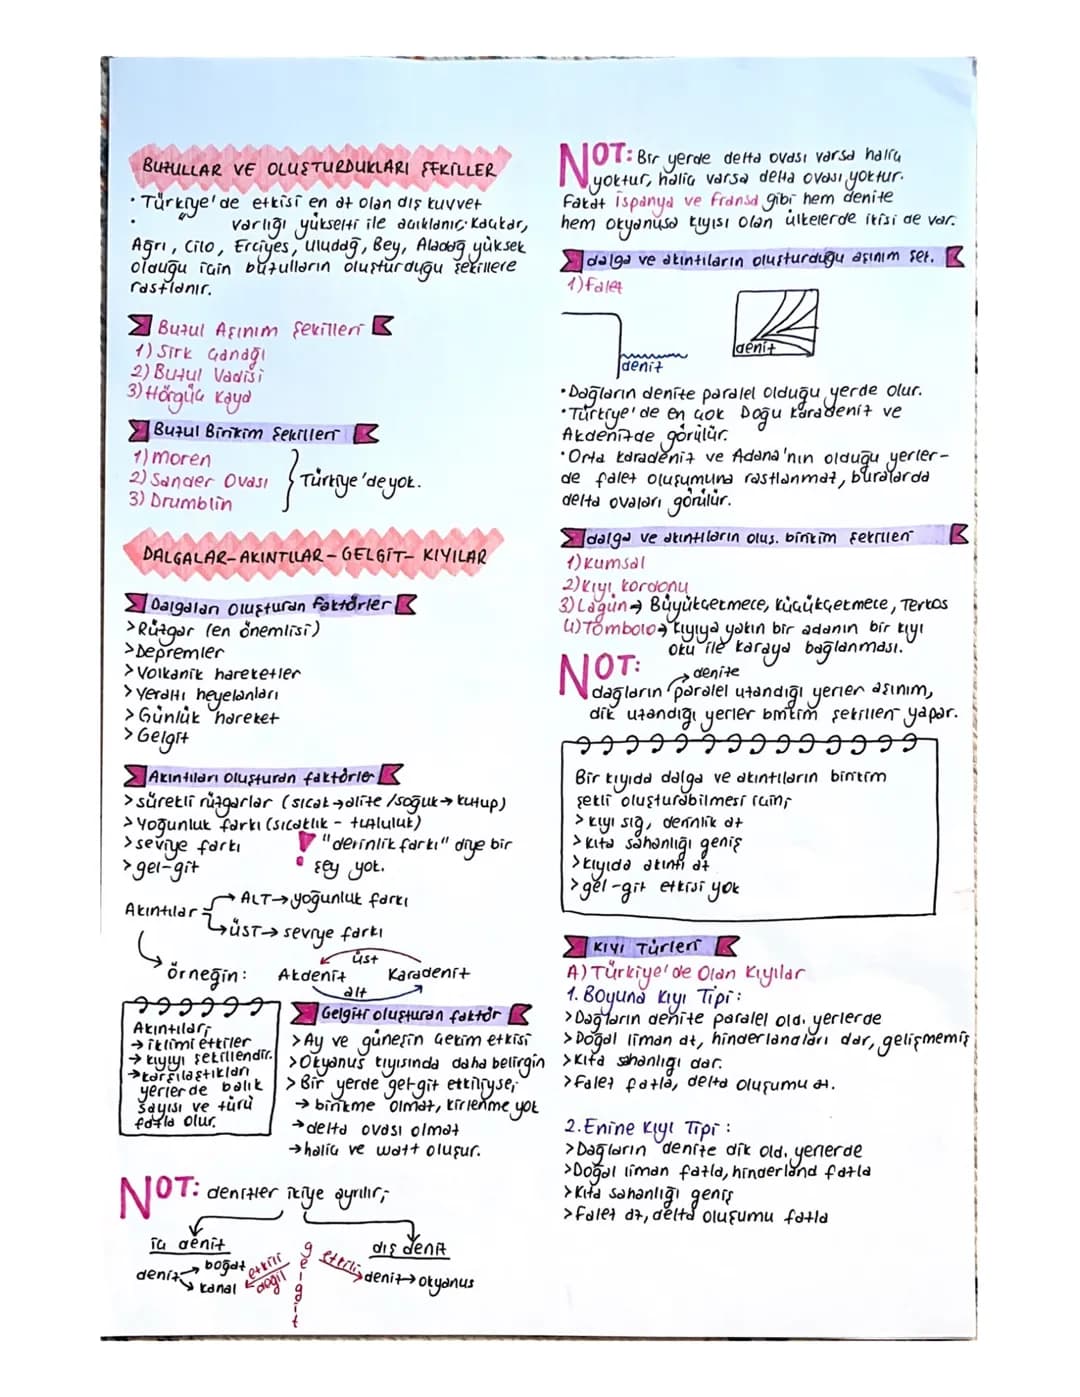 BUZULLAR VE OLUŞTURDUKLARI ŞEKİLLER
• Türkiye'de etkisi en az olan dış kuvvet
• " varlığı yükselti ile açıklanır; Kaçkar,
Ağrı, Cilo, Erciyes, Uludağ, Bey, Aladağ yüksek
olduğu için buzulların oluşturduğu şekillere
rastlanır.
Buzul Aşınım Şekilleri
1) Sirk Çanağı
2) Buzul Vadisi
3) Hörgüç Kaya
Buzul Birikim Şekilleri
1) moren
2) Sander Ovası
3) Drumblin
Türkiye'de yok.
DALGALAR-AKINTILAR-GELGİT-KIYILAR
Dalgaları oluşturan faktörler
> Rüzgar (en önemlisi)
> Depremler
> Volkanik hareketler
> Yeraltı heyelanları
> Günlük hareket
> Gelgit
Akıntıları oluşturan faktörler
> sürekli rüzgarlar (sıcak→alize /soğuk→kutup)
> Yoğunluk farkı (sıcaklık - tuzluluk)
> seviye farkı
> gel-git
! "derinlik farkı" diye bir
şey yok.
Akıntılar
→ ALT→yoğunluk farkı
→ üST→ seviye farkı
örneğin: Akdeniz Karadeniz
üst
alt
Akıntılar;
→ iklimi etkiler
→ kıyıyı şekillendir.
→ karşılaştıkları
yerlerde balık
sayısı ve türü
fazla olur.
Gelgiti oluşturan faktör
> Ay ve güneşin çekim etkisi
> Okyanus kıyısında daha belirgin
> Bir yerde gel-git etkiliyse;
→ birikme olmaz, kirlenme yok
→ delta ovası olmaz
→ haliç ve watt oluşur.
NOT: denizler ikiye ayrılır;
iç deniz
deniz → boğaz
→ kanal
etkili değil
gelgit
etkili
dış deniz
deniz→okyanus
NOT: Bir yerde delta ovası varsa haliç
yoktur, haliç varsa delta ovası yoktur.
Fakat İspanya ve Fransa gibi hem denize
hem okyanusa kıyısı olan ülkelerde ikisi de var.
dalga ve akıntıların oluşturduğu aşınım şek.
1) falez
deniz
deniz
• Dağların denize paralel olduğu yerde olur.
• Türkiye'de en çok Doğu Karadeniz ve
Akdenizde görülür.
• Orta karadeniz ve Adana'nın olduğu yerler-
de falez oluşumuna rastlanmaz, buralarda
delta ovaları görülür.
dalga ve akıntıların oluş. birikim şekilleri
1) kumsal
2) kıyı kordonu
3) Lagün→ Büyükçekmece, Küçükçekmece, Terkos
4) Tombolo→ kıyıya yakın bir adanın bir kıyı
oku ile karaya bağlanması.
NOT:
→ denize
dağların paralel uzandığı yerler aşınım,
dik uzandığı yerler birikim şekilleri yapar.
Bir kıyıda dalga ve akıntıların birikim
şekli oluşturabilmesi için;
> kıyı sığ, derinlik az
> kıta sahanlığı geniş
> kıyıda akıntı az
> gel-git etkisi yok
Kıyı Türleri
A) Türkiye'de Olan Kıyılar
1. Boyuna Kıyı Tipi:
> Dağların denize paralel old. yerlerde
> Doğal liman az, hinderlandları dar, gelişmemiş
> Kıta sahanlığı dar.
> Falez fazla, delta oluşumu az.
2. Enine Kıyı Tipi:
> Dağların denize dik old. yerlerde
> Doğal liman fazla, hinderland fazla
> Kıta sahanlığı geniş
> Falez az, delta oluşumu fazla